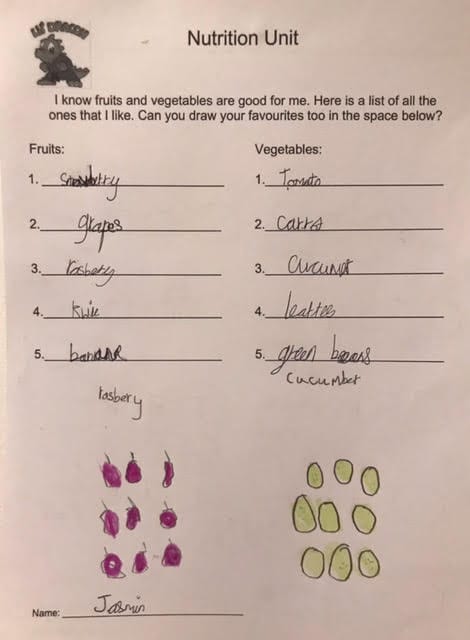 LIL' DRAGON
Nutrition Unit
I know fruits and vegetables are good for me. Here is a list of all the
ones that I like. Can you draw your favourites too in the space below?
Fruits: Vegetables:
1. 1. Tomato
2. grapes 2. Carrs
3. rasbery 3.
4. kwie 4.
5. 5. green
rasbery cucumber
Name: Jasmin